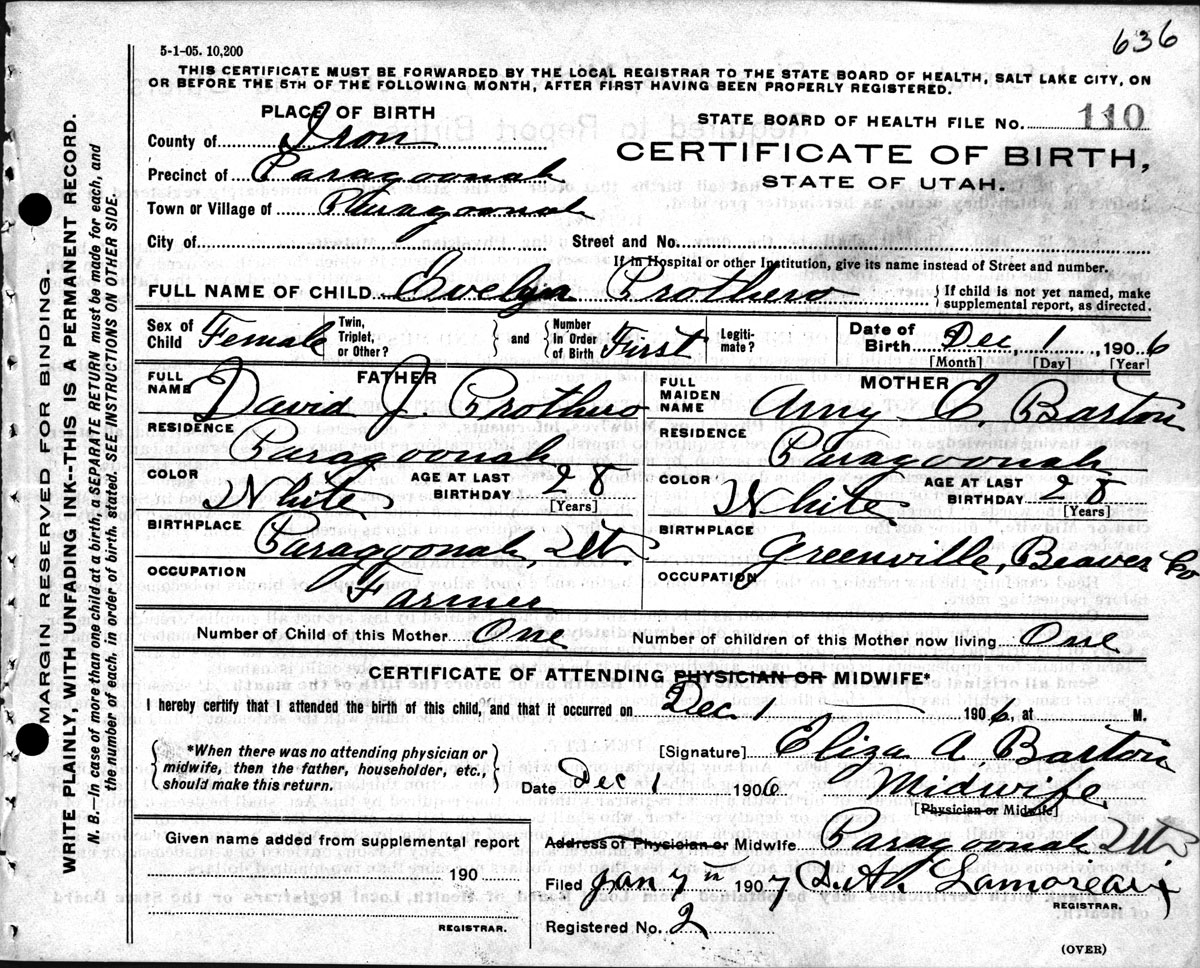 636
5-1-05. 10,200
THIS CERTIFICATE MUST BE FORWARDED BY THE LOCAL REGISTRAR TO THE STATE BOARD OF HEALTH, SALT LAKE CITY, ON
OR BEFORE THE 5TH OF THE FOLLOWING MONTH, AFTER FIRST HAVING BEEN PROPERLY REGISTERED.
PLACE OF BIRTH
STATE BOARD OF HEALTH FILE No. 110
County of Iron
CERTIFICATE OF BIRTH,
STATE OF UTAH.
Precinct of Paragoonah
Town or Village of Paragoonah
City of Street and No.
If in Hospital or other Institution, give its name instead of Street and number.
FULL NAME OF CHILD Evelyn Prothero { If child is not yet named, make supplemental report, as directed.
Sex of Child Female Twin, Triplet, or Other? } and { Number in Order of Birth First Legiti-mate? Date of Birth Dec, 1, 1906
[Month] [Day] [Year]
FATHER
FULL NAME David J. Prothero
RESIDENCE Paragoonah
COLOR White AGE AT LAST BIRTHDAY 28
[Years]
BIRTHPLACE Paragoonah, Utn
OCCUPATION Farmer
MOTHER
FULL MAIDEN NAME Amy E Barton
RESIDENCE Paragoonah
COLOR White AGE AT LAST BIRTHDAY 28
[Years]
BIRTHPLACE Greenville, Beaver Co
OCCUPATION
Number of Child of this Mother One Number of children of this Mother now living One
CERTIFICATE OF ATTENDING PHYSICIAN OR MIDWIFE*
I hereby certify that I attended the birth of this child, and that it occurred on Dec 1 1906, at M.
{ *When there was no attending physician or
midwife, then the father, householder, etc.,
should make this return. }
[Signature] Eliza A. Barton
Date Dec 1 1906 Midwife
[Physician or Midwife]
Given name added from supplemental report
190
REGISTRAR.
Address of Physician or Midwife Paragoonah Utn
Filed Jan 7 1907 Lamoreaux
REGISTRAR.
Registered No. 2
(OVER)
MARGIN RESERVED FOR BINDING.
WRITE PLAINLY, WITH UNFADING INK--THIS IS A PERMANENT RECORD.
N. B.—In case of more than one child at a birth, a SEPARATE RETURN must be made for each, and
the number of each, in order of birth, stated. SEE INSTRUCTIONS ON OTHER SIDE.